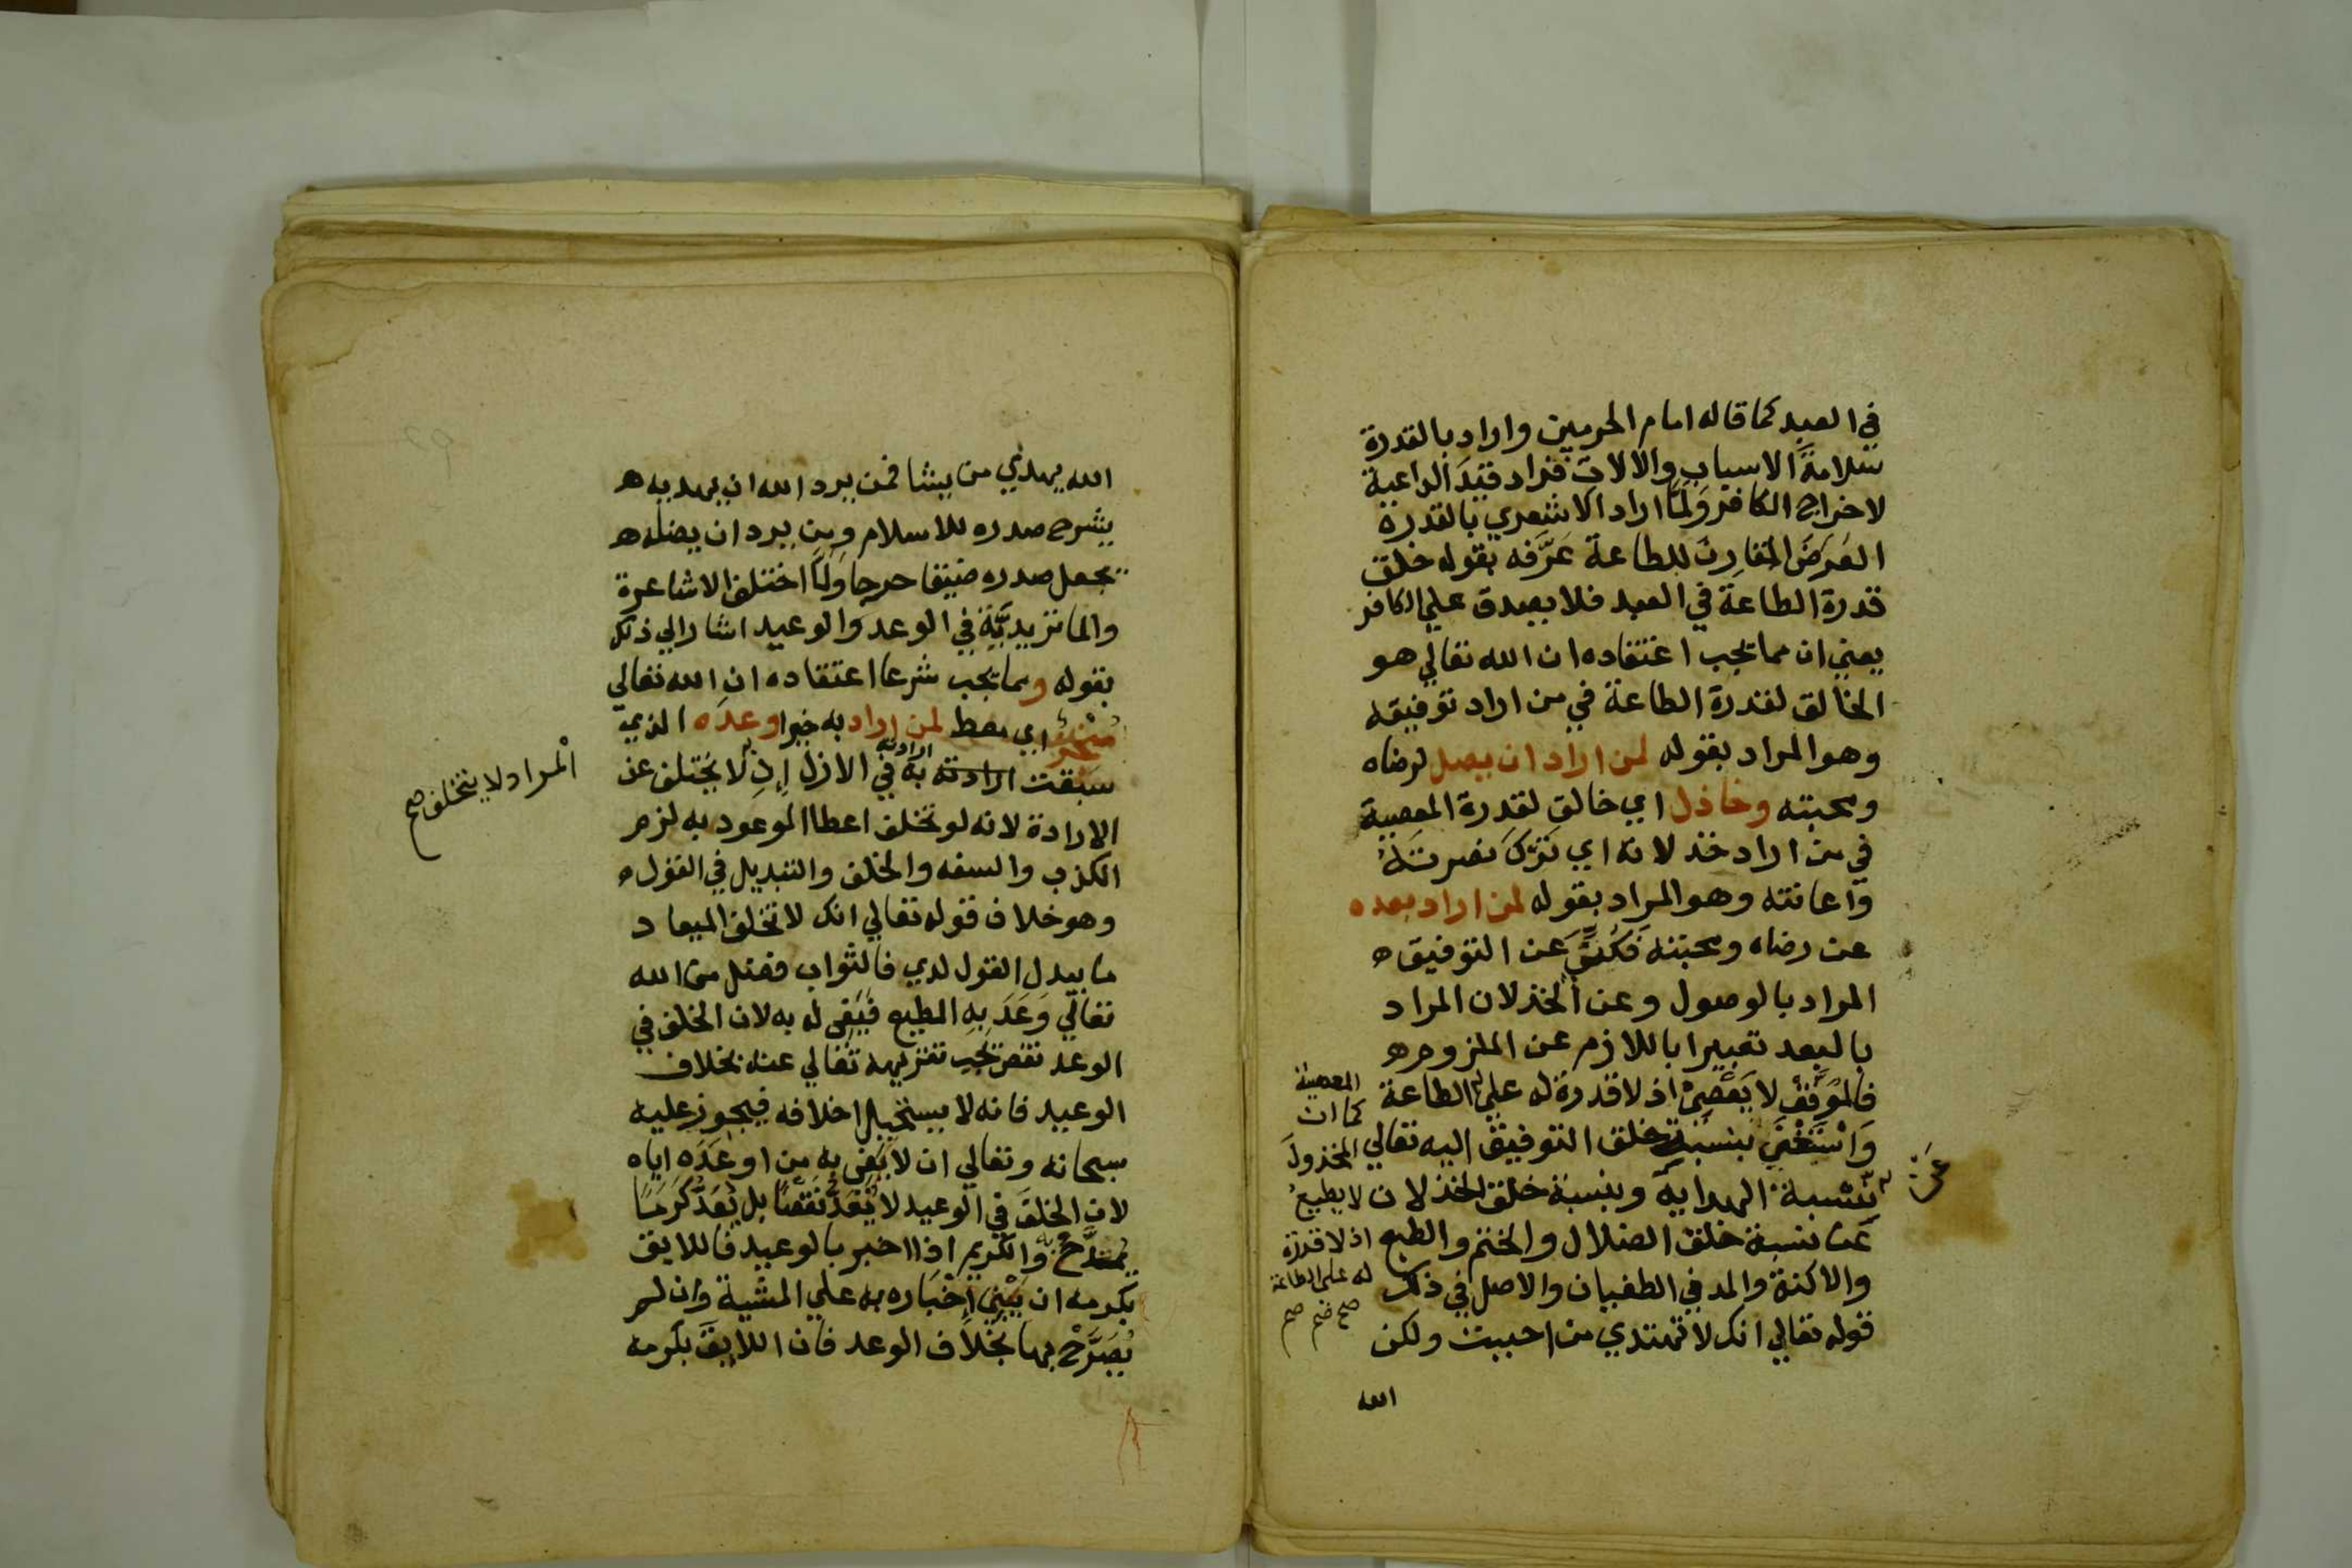 في العبد كما قاله امام الحرمين واراد بالقدرة
سلامة الاسباب والالات فزاد قيد الداعية
لاخراج الكافر وَلَمَّا اراد الاشعري بالقدرة
العَرَضَ المقارِن للطاعة عَرَّفه بقوله خلق
قدرة الطاعة في العبد فلا يصدق علي الكافر
يعني ان مما يجب اعتقاده ان الله تعالي هو
الخالق لقدرة الطاعة في من اراد توفيقه
وهو المراد بقوله لمن اراد ان يصل لرضاه
ومحبته وخاذل اي خالق لقدرة المعصية
في من اراد خذلانه اي تَرْكَ نصرته
واعانته وهو المراد بقوله لمن اراد بعده
عن رضاه ومحبته فكنَّى عن التوفيق ه
المراد بالوصول وعن الخذلان المراد
بالبعد تعبيرا باللازم عن الملزوم ه
فالمُوَفَّقُ لا يَعْصِي اذ لا قدرة له علي الطاعة
وَاسْتَغْنَي بنسبة خلق التوفيق اليه تعالي
نسبة الهداية وبنسبة خلق الخذلان
عن نسبة خلق الضلال والختم والطبع
والاكنة والمد في الطغيان والاصل في ذلك
قوله تعالي انك لا تهتدي من احببت ولكن
الله
المعصية
كما ان
المخذولَ
لا يطيعُ
اذ لا قدرة
له علي الطاعة
صح صح
عَنْ
الله يهدي من يشا فمن يرد الله ان يهديه ه
يشرح صدره للاسلام ومن يرد ان يضله ه
يجعل صدره ضيقا حرجا وَلَمَّا اختلف الاشاعرة
والماتريديَّة في الوعد والوعيد اشار الي ذلك
بقوله ومما يجب شرعا اعتقاده ان الله تعالي
منجز اي معط لمن اراد به خيرا وعده الذي
سَبَقت ارادته به في الازل اِذِ لا يختلف عن
ارادته
الارادة لانه لو تخلف اعطا الموعود به لزم
الكذب والسفه والخلف والتبديل في القول ه
وهو خلاف قوله تعالي انك لا تخلف الميعاد
ما يبدل القول لدي فالثواب فضل من الله
تعالي وَعَدَ بِهِ المطيع فيَفي له به لان الخلف في
الوعد نقص يجب تنزيهه تعالي عنه بخلاف
الوعيد فانه لا يستحيل اخلافه فيجوز عليه
سبحانه وتعالي ان لا يَفِيَ به من اوعَدَه اياه
لان الخلفَ في الوعيد لا يُعَدُّ نَقْصًا بل يُعَدُّ كَرَمًا
يمتدَحُ والكريم اذا اخبر بالوعيد فاللايق
بكرمه ان يَبْنِيَ اِخْبَاره به علي المشية وان لم
يُصَرِّحْ بها بخلاف الوعد فان اللايقَ بكرمه
المراد لا يتخلف صح